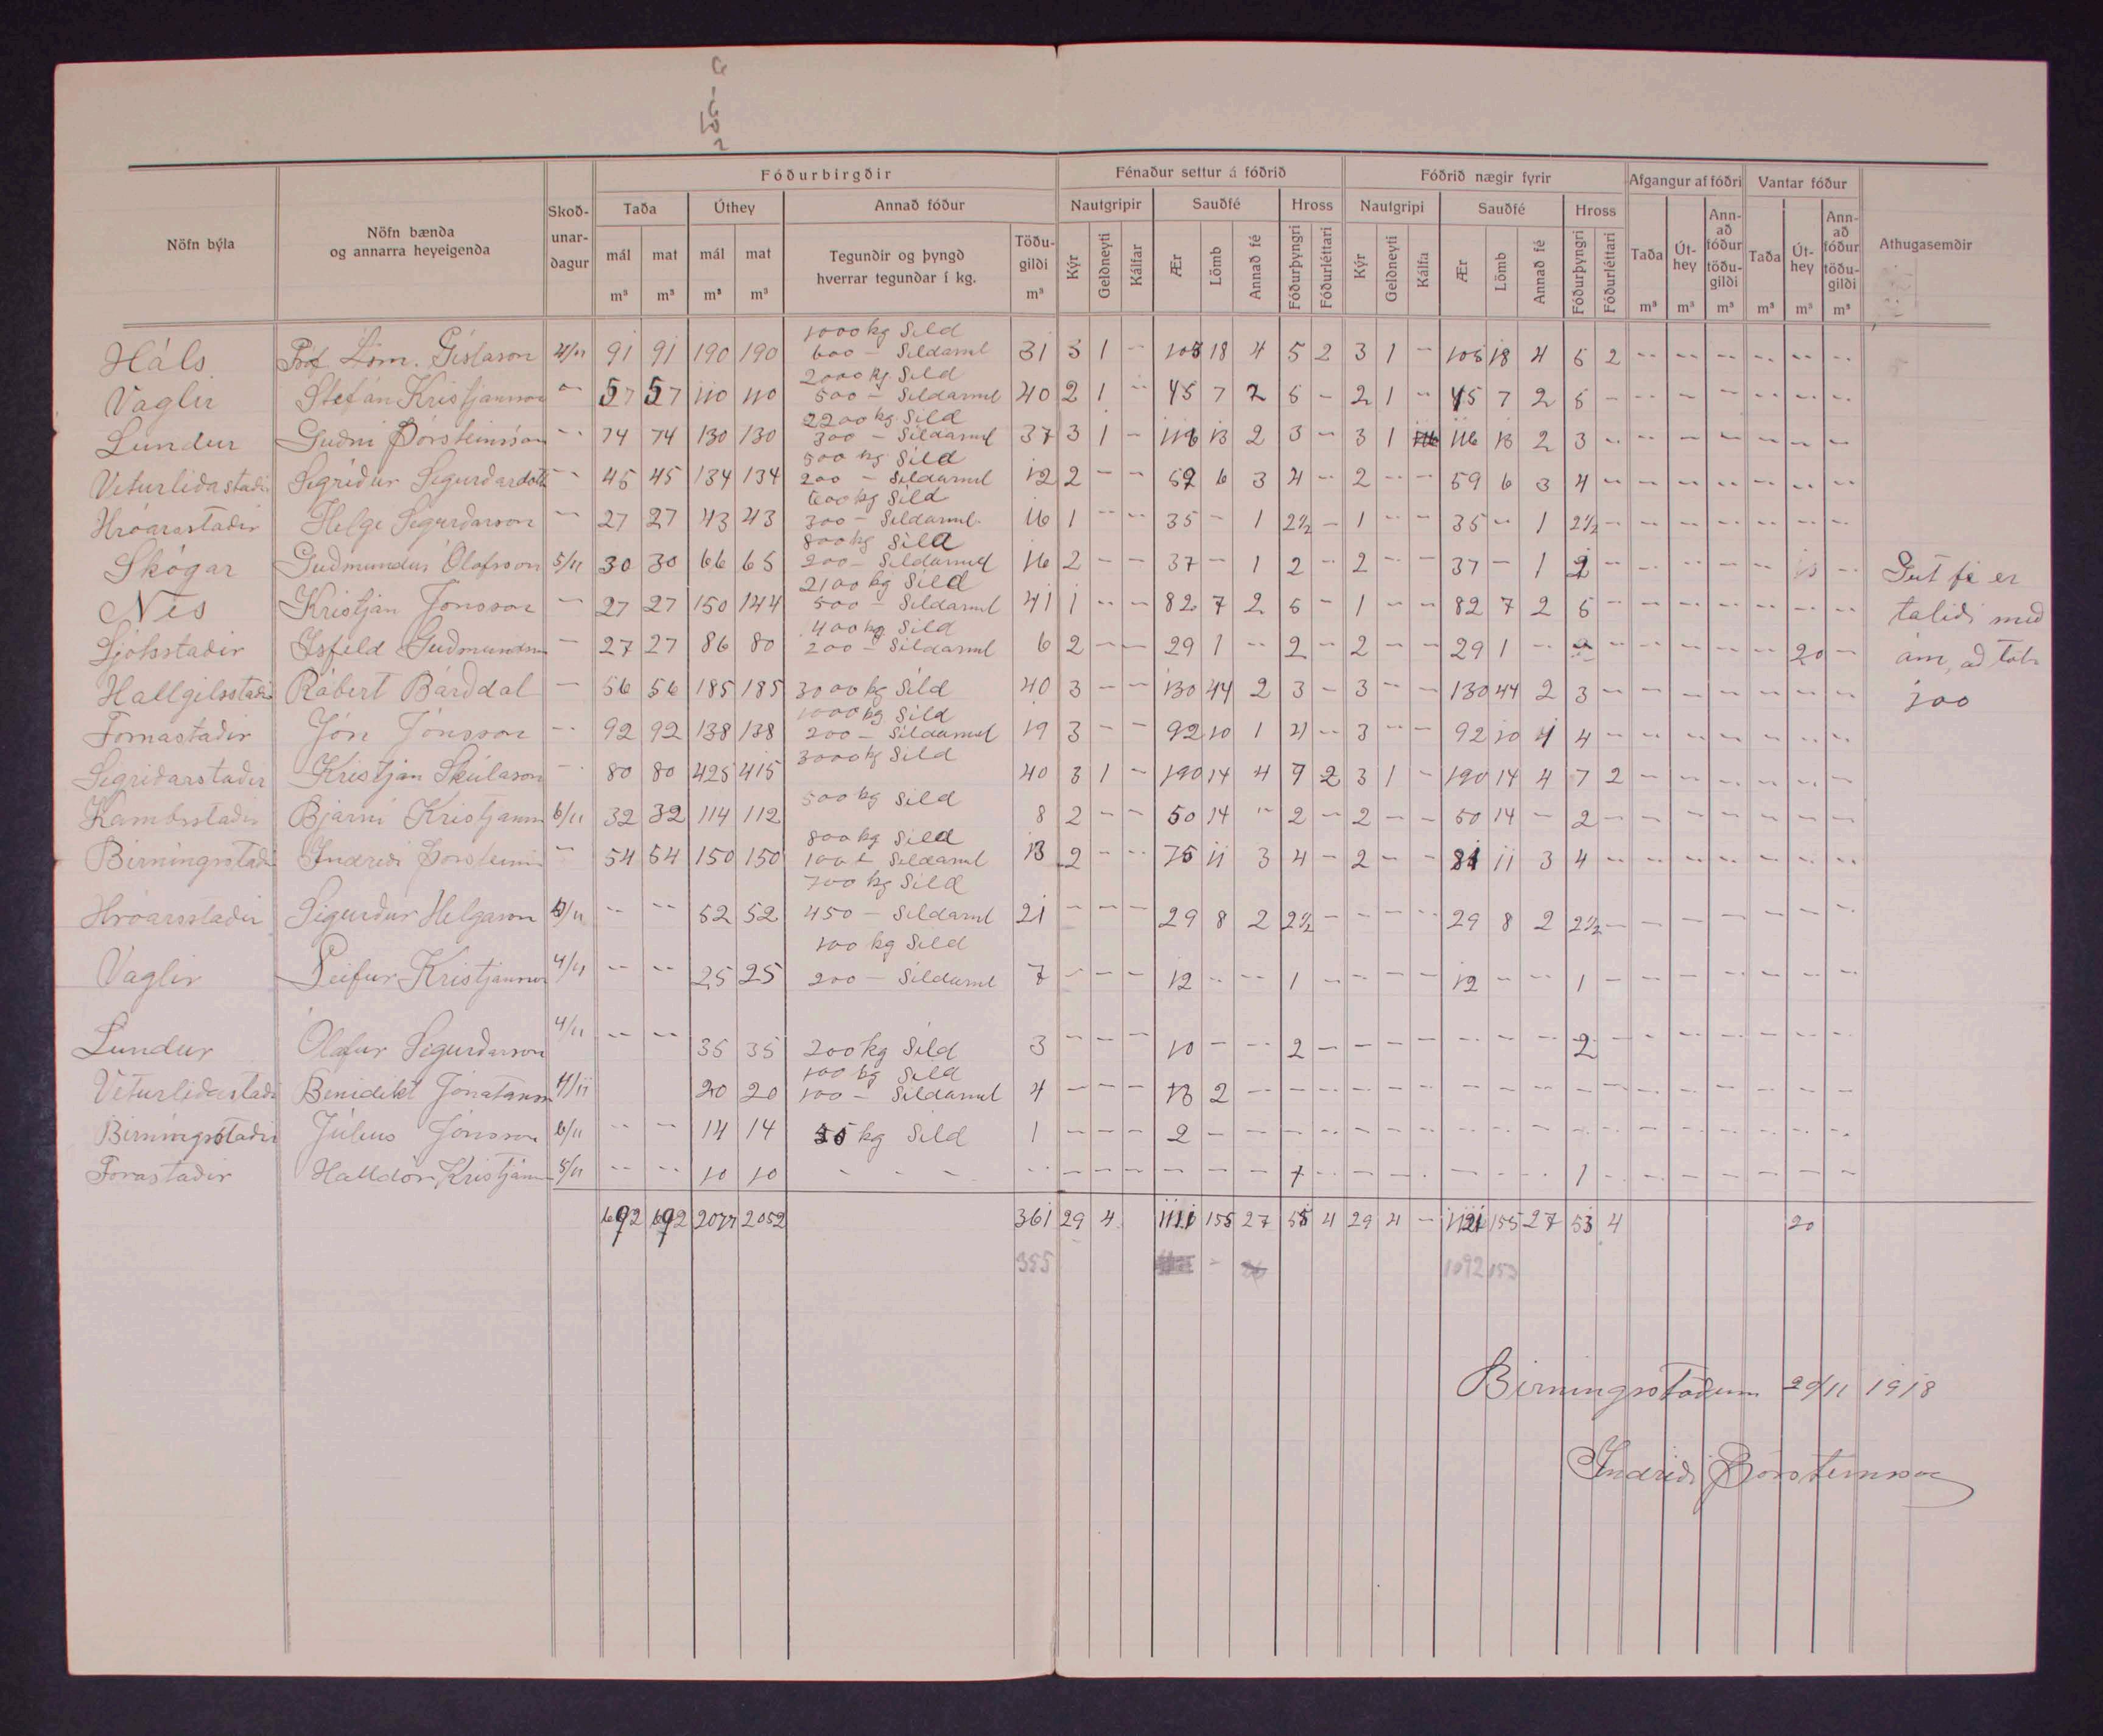 Fóðurbirgðir Fénaður settur á fóðrið Fóðrið nægir fyrir Afgangur af fóðri Vantar fóður
Nöfn býla Nöfn bænda og annarra heyeigenda Skoð-unar-dagur Taða Úthey Annað fóður Nautgripir Sauðfé Hross Nautgripi Sauðfé Hross Taða Út-hey Ann-að fóður töðu-gildi Taða Út-hey Ann-að fóður töðu-gildi Athugasemdir
mál mat mál mat Tegundir og þyngd hverrar tegundar í kg. Töðu-gildi Kýr Geldneyti Kálfar Ær Lömb Annað fé Fóðurþyngri Fóðurléttari Kýr Geldneyti Kálfa Ær Lömb Annað fé Fóðurþyngri Fóðurléttari
m³ m³ m³ m³ m³ m³ m³ m³ m³ m³ m³
1000 kg Síld
Háls Gíslason 4/11 91 91 190 190 600 - Síldarml 31 3 1 - 105 18 4 5 2 3 1 - 105 18 4 5 2 - - - - - -
2000 kg Síld
Vaglir Stefán Kristjánsson - 57 57 110 110 500 - Síldarml 40 2 1 - 45 7 2 5 - 2 1 - 45 7 2 5 - - - - - - -
2200 kg Síld
Lundur Guðni Þorsteinsson - 74 74 130 130 300 - Síldarml 37 3 1 - 116 13 2 3 - 3 1 116 13 2 3 - - - - - - -
500 kg Síld
Veturliðastaðir Sigríður Sigurðardótt - 45 45 134 134 200 - Síldarml 12 2 - - 59 6 3 4 - 2 - - 59 6 3 4 - - - - - - -
600 kg Síld
Hróarsstaðir Helgi Sigurðarson - 27 27 43 43 300 - Síldarml 16 1 - - 35 - 1 2½ - 1 - - 35 - 1 2½ - - - - - - -
800 kg Síld
Skógar Guðmundur Ólafsson 5/11 30 30 66 65 200 - Síldarml 16 2 - - 37 - 1 2 - 2 - - 37 - 1 2 - - - - - - Gut fé er
2100 kg Síld
Nes Kristján Jónsson - 27 27 150 144 500 - Síldarml 41 1 - - 82 7 2 5 - 1 - - 82 7 2 5 - - - - - - - talið með
400 kg Síld
Ljótsstaðir Ísfeld Guðmundsson - 27 27 86 80 200 - Síldarml 6 2 - - 29 1 - 2 - 2 - - 29 1 - - - - - - 20 - ám, að tölu
Hallgilsstaðir Róbert Bárðdal - 56 56 185 185 3000 kg Síld 40 3 - - 130 44 2 3 - 3 - - 130 44 2 3 - - - - - - - 100
1000 kg Síld
Fornastaðir Jón Jónsson - 92 92 138 138 200 - Síldarml 19 3 - - 92 10 1 4 - 3 - - 92 10 4 4 - - - - - - -
3000 kg Síld
Sigríðarstaðir Kristján Skúlason - 80 80 425 415 40 3 1 - 190 14 4 7 2 3 1 - 190 14 4 7 2 - - - - - -
500 kg Síld
Kambsstaðir Bjarni Kristjánss 6/11 32 32 114 112 8 2 - - 50 14 - 2 - 2 - - 50 14 - 2 - - - - - - -
800 kg Síld
Birningsstaðir Indriði Þorsteinss - 54 54 150 150 100 - Síldarml 13 2 - - 75 11 3 4 - 2 - - 81 11 3 4 - - - - - - -
700 kg Síld
Hróarsstaðir Sigurður Helgason 4/11 - - 52 52 450 - Síldarml 21 - - - 29 8 2 2½ - - - - 29 8 2 2½ - - - - - - -
100 kg Síld
Vaglir Leifur Kristjánsson 4/11 - - 25 25 200 - Síldarml 7 - - - 12 - - 1 - - - - 12 - - 1 - - - - - - -
Lundur Ólafur Sigurðarson 4/11 - - 35 35 200 kg Síld 3 - - - 10 - - 2 - - - - - - - 2 - - - - - - -
100 kg Síld
Veturliðastaðir Benidikt Jónatanss 4/11 20 20 100 - Síldarml 4 - - - 13 2 - - - - - - - - - - - - - - - - -
Birningsstaðir Júlíus Jónsson 6/11 - - 14 14 kg Síld 1 - - - 2 - - - - - - - - - - - - - - - - - -
Fornastaðir Halldór Kristjánss 5/11 - - 10 10 - - - - - - - - - - 1 - - - - - - - 1 - - - - - - -
692 692 2077 2052 361 29 4 1111 155 27 55 4 29 4 - 1121 155 27 53 4 20
355 1092 153
Birningsstöðum 29/11 1918
Indriði Þorsteinsson